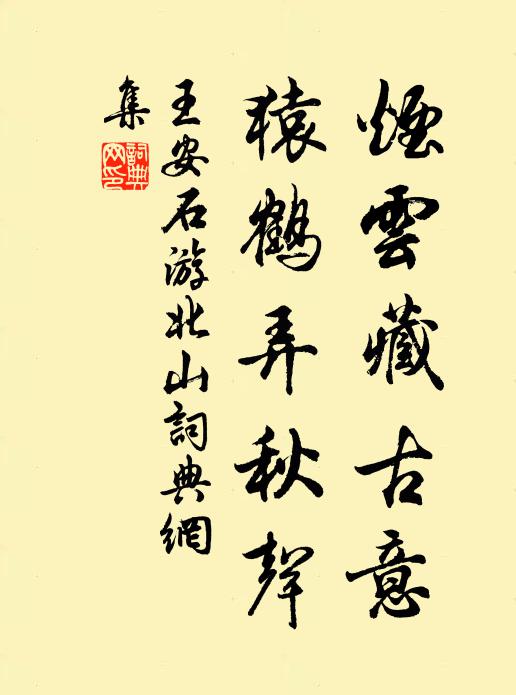 煙雲藏古意
猿鶴弄秋聲
王安石游北山詞典網
集
詞典網印